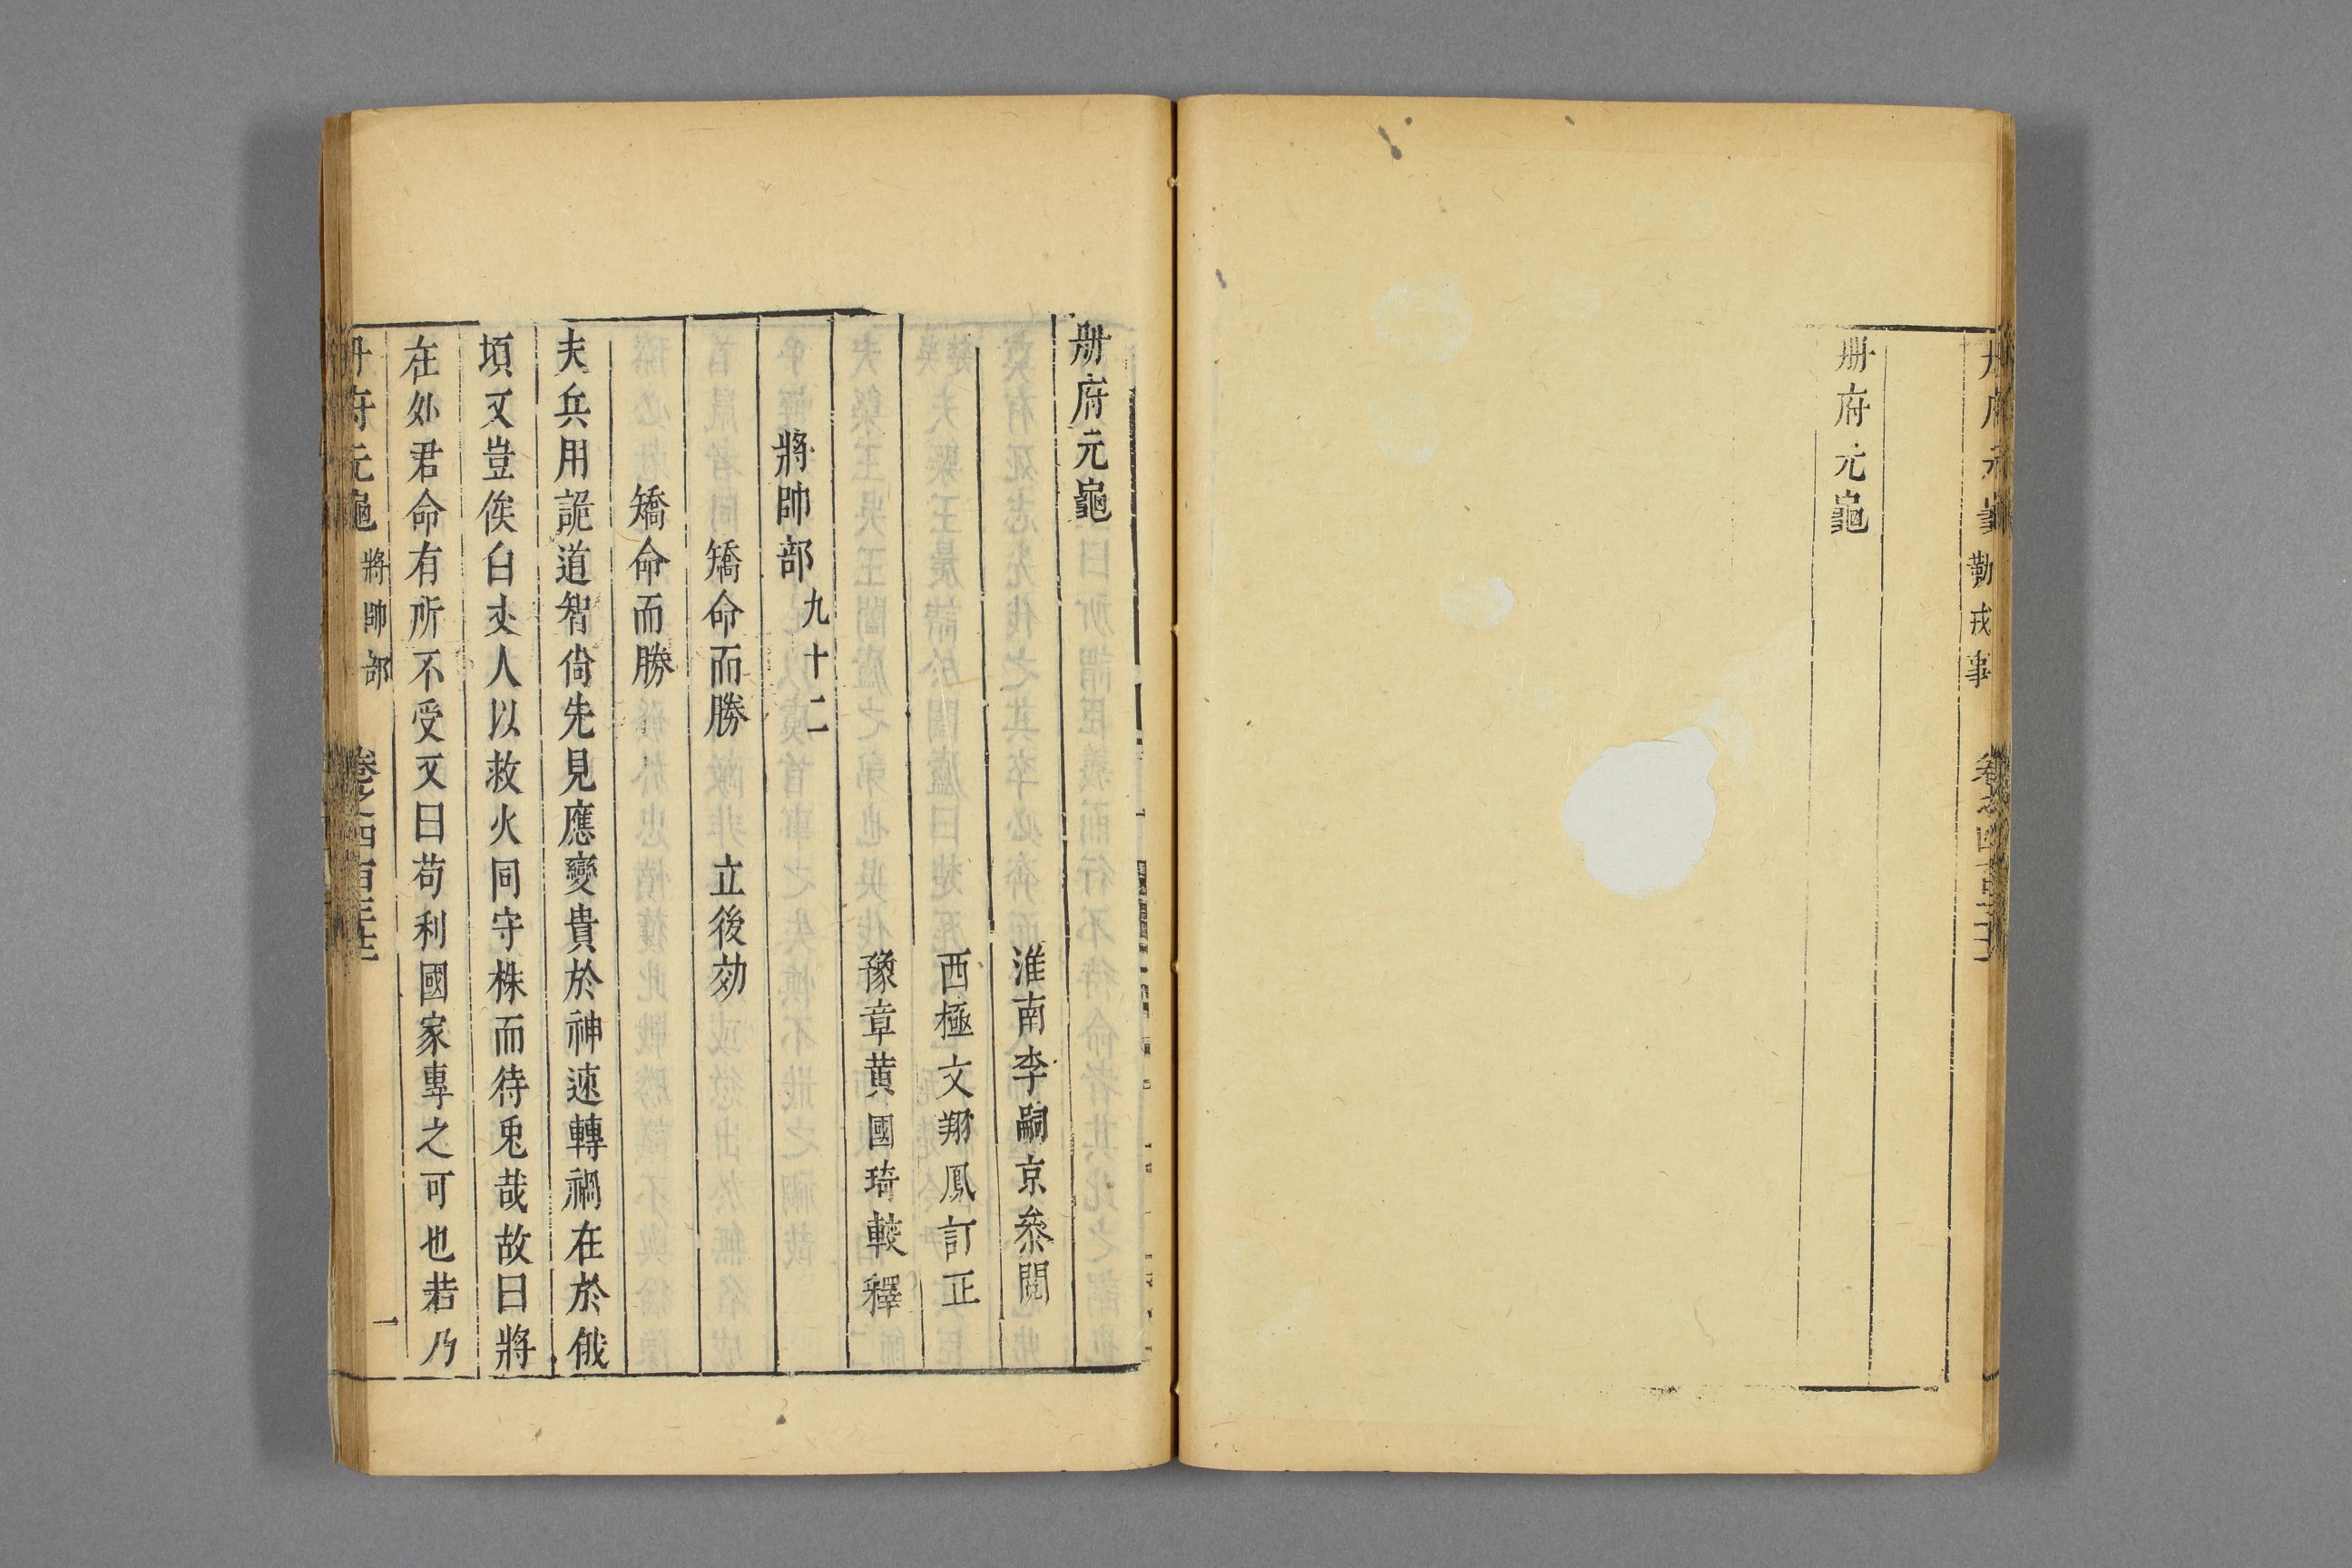 册府元龜 勤戎事
册府元龜
册府元龜
淮南李嗣京叅閱
西極文翔鳳訂正
豫章黃國琦較釋
將帥部九十二
矯命而勝 立後効
矯命而勝
夫兵用詭道智尙先見應變貴於神速轉禍在於俄
頃又豈俟白丈人以救火同守株而待兎哉故曰將
在外君命有所不受又曰苟利國家專之可也若乃
册府元龜 將帥部 卷之四百三十二 一